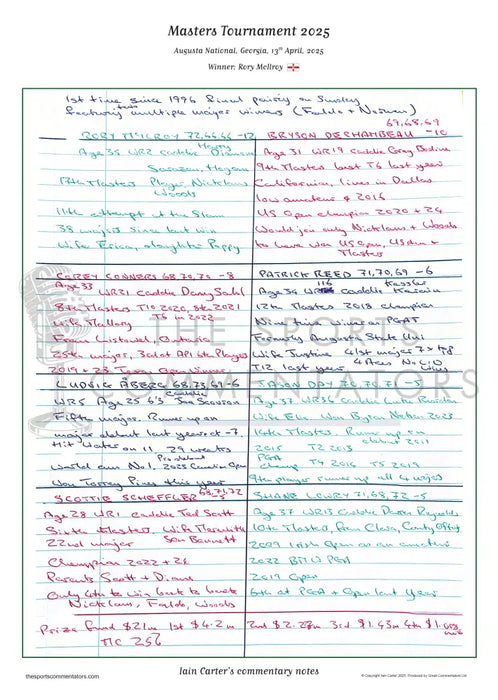 Masters Tournament 2025
Augusta National, Georgia, 13th April, 2025
Winner: Rory McIlroy
1st time since 1996 final pairing on Sunday
featuring multiple major winners (Faldo + Norman)
RORY McILROY 72,66,66 -12
Age 35 WR2 caddie Harry Diamond
Sarazen, Hogan
17th Masters Player, Nicklaus,
Woods
11th attempt at the Slam
38 majors since last win
Wife Erica, daughter Poppy
69,68,69
BRYSON DECHAMBEAU -10
Age 31 WR19 caddie Greg Bodine
9th Masters best T6 last year
Californian, lives in Dallas
low amateur 2016
US Open champion 2020 + 24
Would join only Nicklaus + Woods
to have won US Open, US Am +
Masters
COREY CONNERS 68,70,70 -8
Age 33 WR21 caddie Danny Sahl
8th Masters T10 2020, 8th 2021
Wife Mallory T6 in 2022
From Listowel, Ontario
25th major, 3rd at API 6th Players
2019 + 23 Texas Open winner
PATRICK REED 71,70,69 -6
Age 34 WR 116 caddie Kessler Karain
12th Masters 2018 champion
Nine time winner on PGAT
Formerly Augusta State Uni
Wife Justine 41st major 7 x top
T12 last year
LUDVIG ÅBERG 68,73,69 -6
WR5 Age 25 6'3 caddie Joe Skovron
Fifth major, Runner up
major debut last year at -7
Hit water on 11, 29 weeks
Pro debut
World am No 1, 2023
Won Torrey Pines this year
JASON DAY 70,70,71 -5
Age 37 WR36 caddie Luke Reardon
Wife Ellie Won Byron Nelson 2023
14th Masters, Runner up on
debut 2011
2015 T2 2013
PGA
champ T4 2016 T5 2019
SCOTTIE SCHEFFLER 68,71,72 -5
Age 28 WR1 caddie Ted Scott
Sixth Masters, Wife Meredith
22nd major Son Bennett
Champion 2022 + 24
Parents Scott + Diane
Only 4th to win back to back
Nicklaus, Faldo, Woods
SHANE LOWRY 71,68,72 -5
Age 37 WR13 caddie Darren Reynolds
10th Masters, from Clara, County Offaly
2009 Irish Open as an amateur
2022 BMW PGA
2019 Open
6th at PGA + Open last year
Prize fund $21m 1st $4.2m 2nd $2.27m 3rd $1.43m 4th
THE SPORTS
COMMENTATORS
Iain Carter's commentary notes
thesportscommentators.com